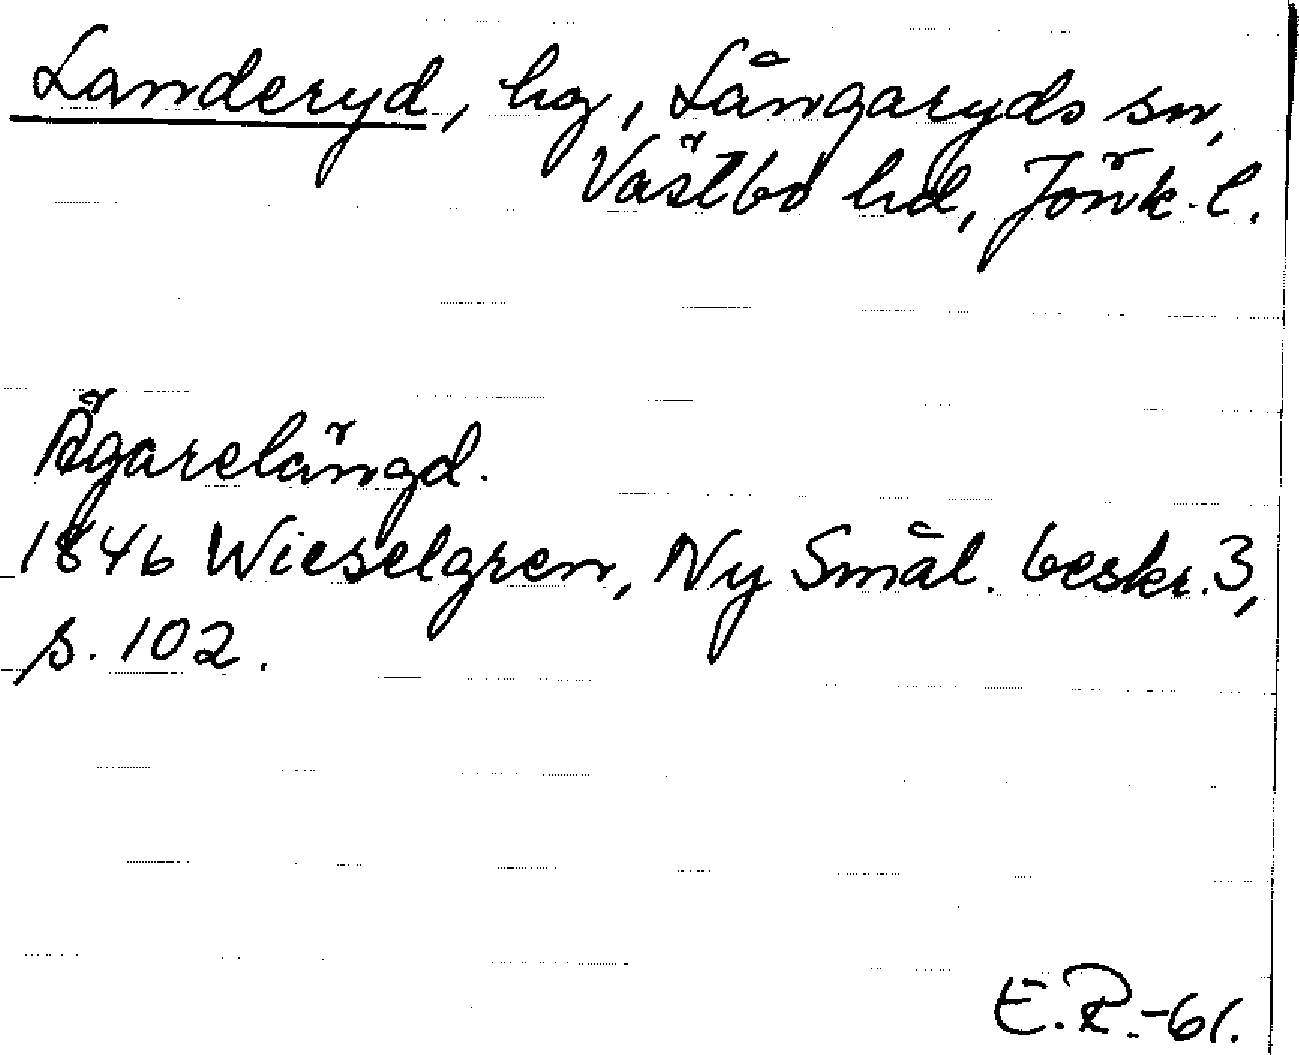 Landeryd, hg, Långaryds sn,
Västbo hd, Jönk. l.
Ägarelängd.
1846 Wieselgren, Ny Smål. beskr. 3,
s. 102.
E.R.-61.